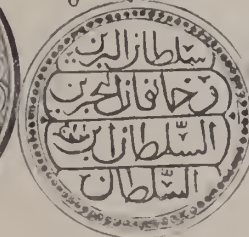 سلطان البرين
و خاقان البحرين
السلطان بن
السلطان